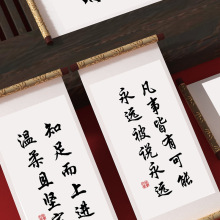 凡事皆有可能
永远被说永远
知足而上进
温柔且坚